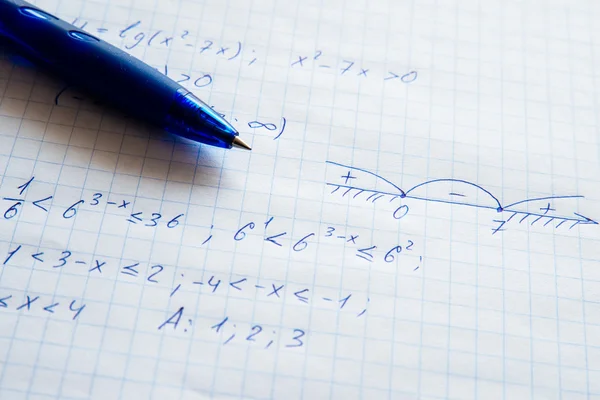 = lg(x²-7x); x²-7x >0
) >0
( ; ∞)
+ - +
0 7
1/6 < 6³⁻ˣ ≤ 36 ; 6¹ < 6³⁻ˣ ≤ 6² ;
1 < 3-x ≤ 2 ; -4 < -x ≤ -1 ;
≤ x < 4 A: 1; 2; 3